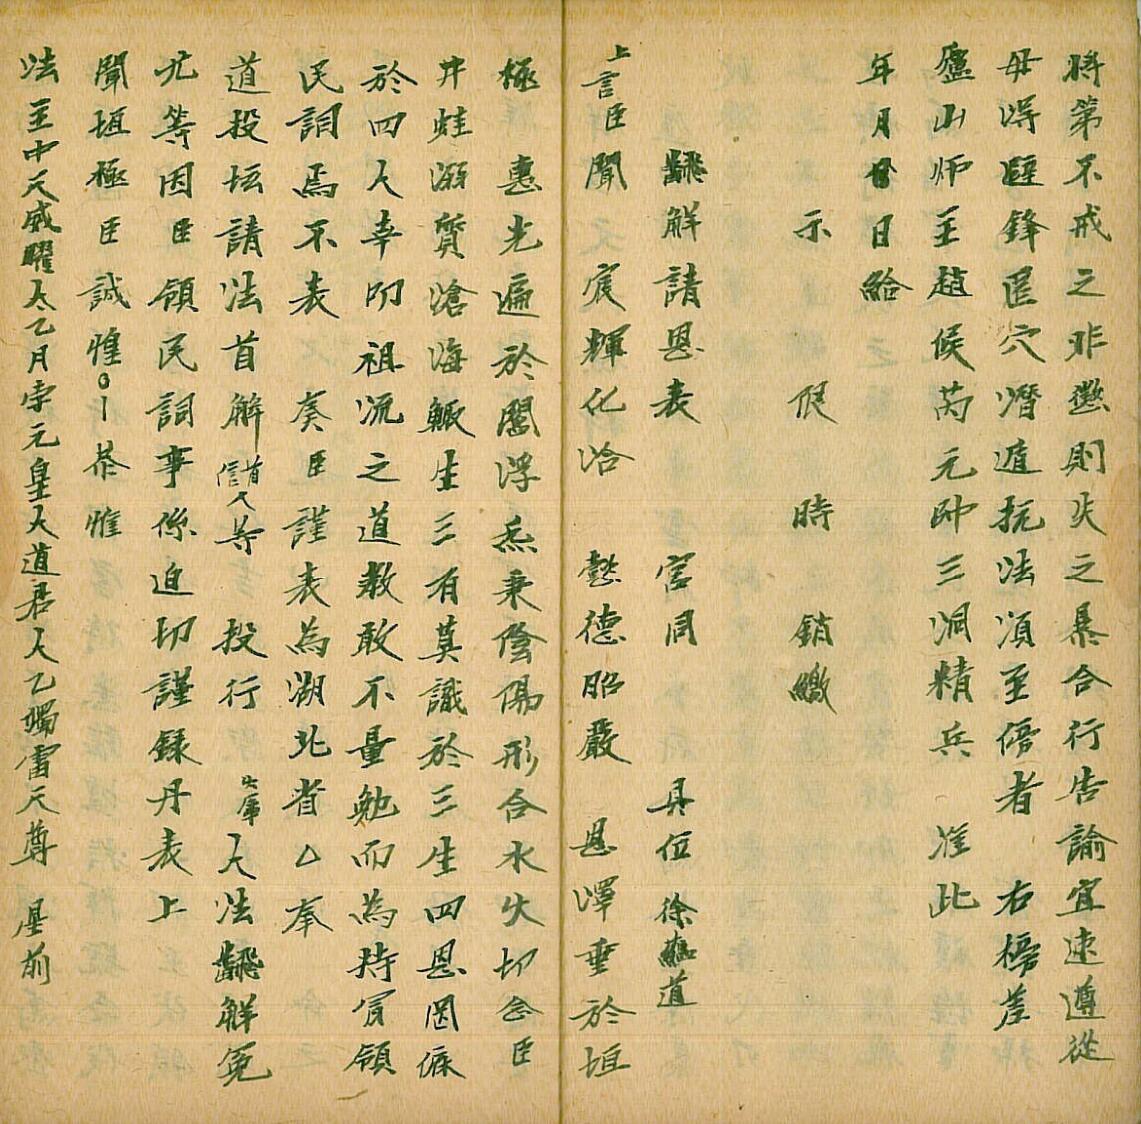 將第不戒之非懲則失之暴合行告諭宜速遵從
毋得避鋒匿穴潛遁抗法湏至僗者　右榜差
廬山炉主趙侯苪元帥三洞精兵　准此
年月日給
示　限　時　銷繳
解請恩表　宮同　具位徐道
上言臣聞　宸輝化洽　懿德昭嚴　恩澤垂於垣
極　惠光遍於閻浮炁秉陰陽形合水火切念臣
井蛙溺質滄海鯫生三有莫識於三生四恩罔

於四人幸叨　祖流之道教敢不量勉而為特冐領
民詞焉不表　奏臣謹表為湖北省厶奉
道投坛請法首解信首人等　投行　大法解冤
尤等因臣領民詞事係迫切謹錄丹表上
聞垣極臣誠惶〇丨恭惟
法主中天威曜太乙月孛元皇大道君太乙燭雷天尊　星前